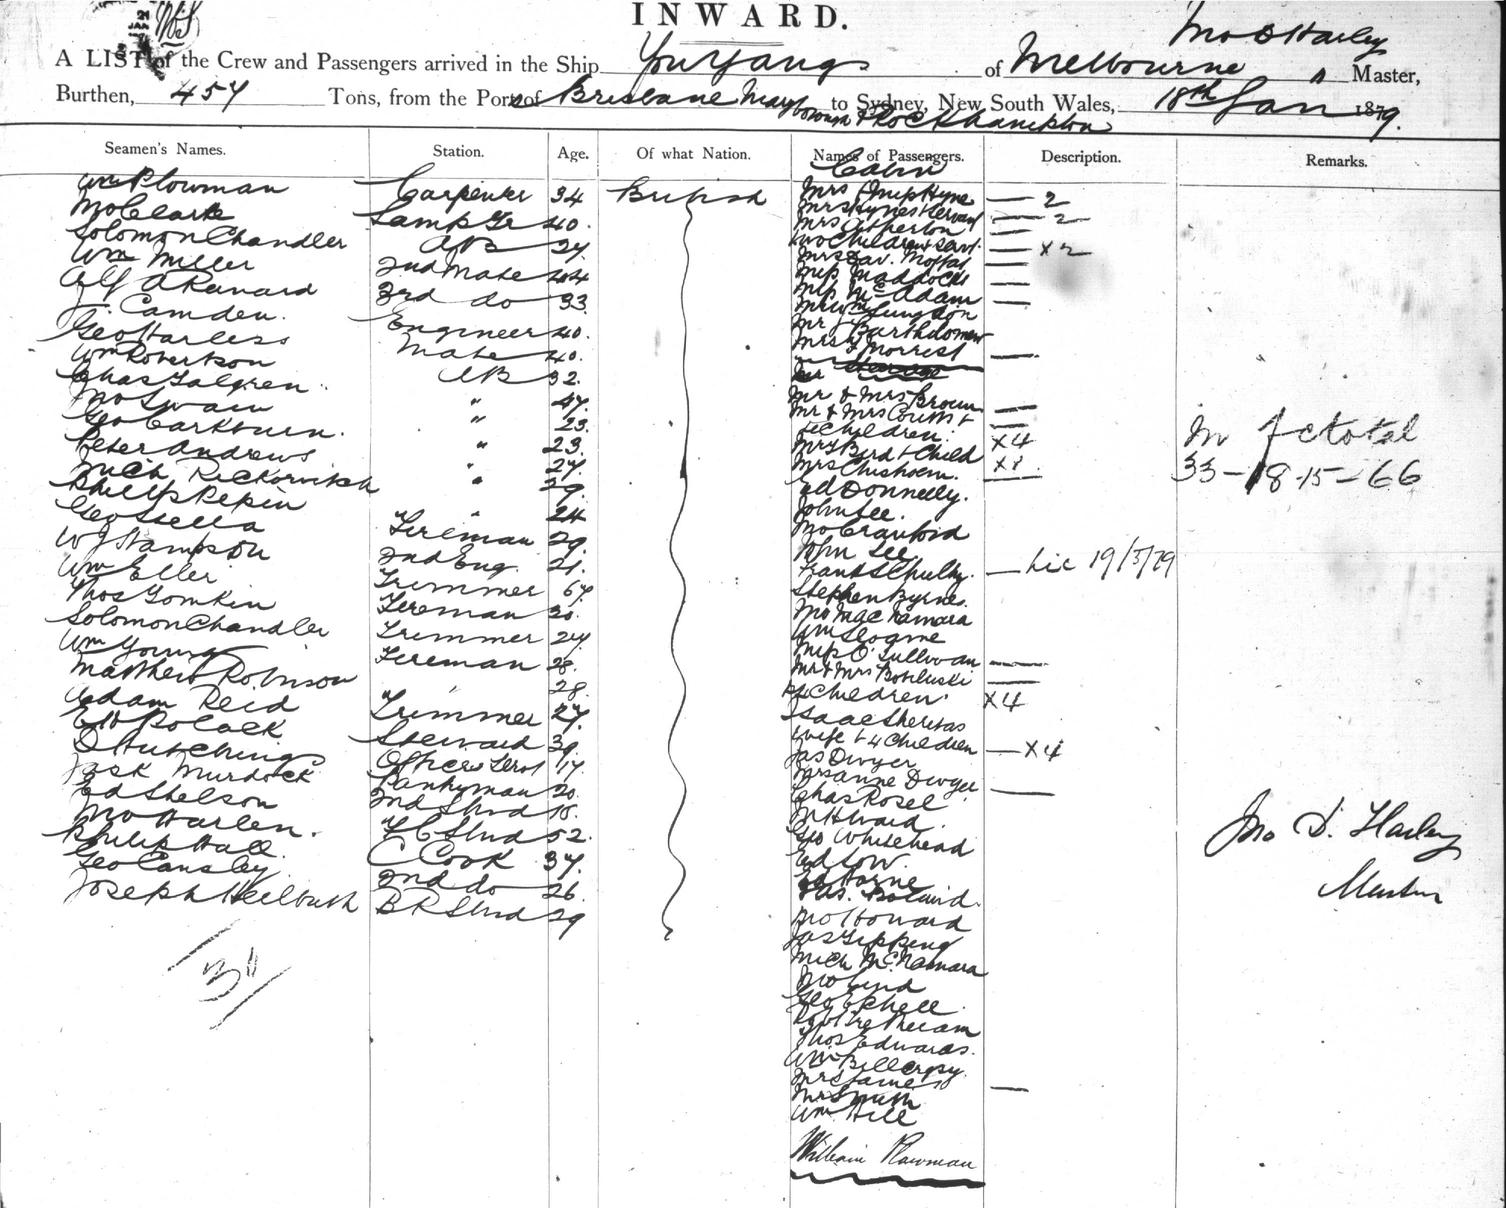 21
JAN
INWARD.
Jno D Harley
A LIST of the Crew and Passengers arrived in the Ship You Yangs of Melbourne " Master,
Burthen, 457 Tons, from the Port of Brisbane Maryborough & Rockhampton to Sydney, New South Wales, 18th Jan 1879.
Seamen's Names. Station. Age. Of what Nation. Names of Passengers. Description. Remarks.
Cabin
Wm Plowman Carpenter 34 British
Jno Clark Lamp Tr 40.
Solomon Chandler AB 27.
Wm Miller 2nd Mate 44
Alf A Renard 3rd do 33.
J. Camden. Engineer 40.
Geo Harless Mate 40.
Wm Robertson AB 32.
Chas Galgren. " 47
Jno Swain " 23.
Geo " 23.
Peter Andrews " 27.
Mich " 29.
Phillip Pepin " 24
Geo Sella Fireman 29.
W J Sampson 2nd Eng. 21.
Wm Eller Trimmer 67
Thos Tomkin Fireman 30.
Solomon Chandler Trimmer 27
Wm Young Fireman 28.
Matthew Robinson " 28.
Adam Reid Trimmer 27.
Ed Polack Steward 39.
D Hutchings Officers Servt 17
Jack Murdock Pantryman 20.
Ed Shelson 2nd Stwd 18.
Jno Harlen. F C Stwd 52.
Philip Hall. C Cook 37.
Geo Cansley. 2nd do 26.
Joseph B R Stwd 29
31
Mrs & Miss Hyne — 2
Mrs Hynes Servant — 2
Mrs Atherton —
two Children & Servt. — x2
Mrs Gav. Moffat —
Miss Maddocks —
Miss McAdam —
Mrs Wm
Mr J Bartholomew
Mrs —
F Morrest —
Steerage
Mr & Mrs Brown —
Mr & Mrs Coutts & —
4 Children. x4
Mrs Bird & Child x1.
Mrs Chisholm. —
Ed Donnelly.
John Lee.
Jno Crawford
John Lee
Frank — Lic 19/3/79
Stephen Byrnes.
Jno MacNamara
Wm
Miss O'Sullivan —
Mr & Mrs —
4 Children x4
Isaac
wife & 4 Children — x4
Jas Dwyer
Mrs Anne Dwyer —
Chas Rosel
Geo Whitehead
Ed Low
Ed Horne
Jas. Boland.
Jno Howard
Jas Tipping
Mich McNamara
Jno Lind
Geo
Thos Edwards.
Wm
Mrs James —
Mr Smith
Wm Hill
William Plowman
In f c total
33-18-15-66
Jno D. Harley
Master